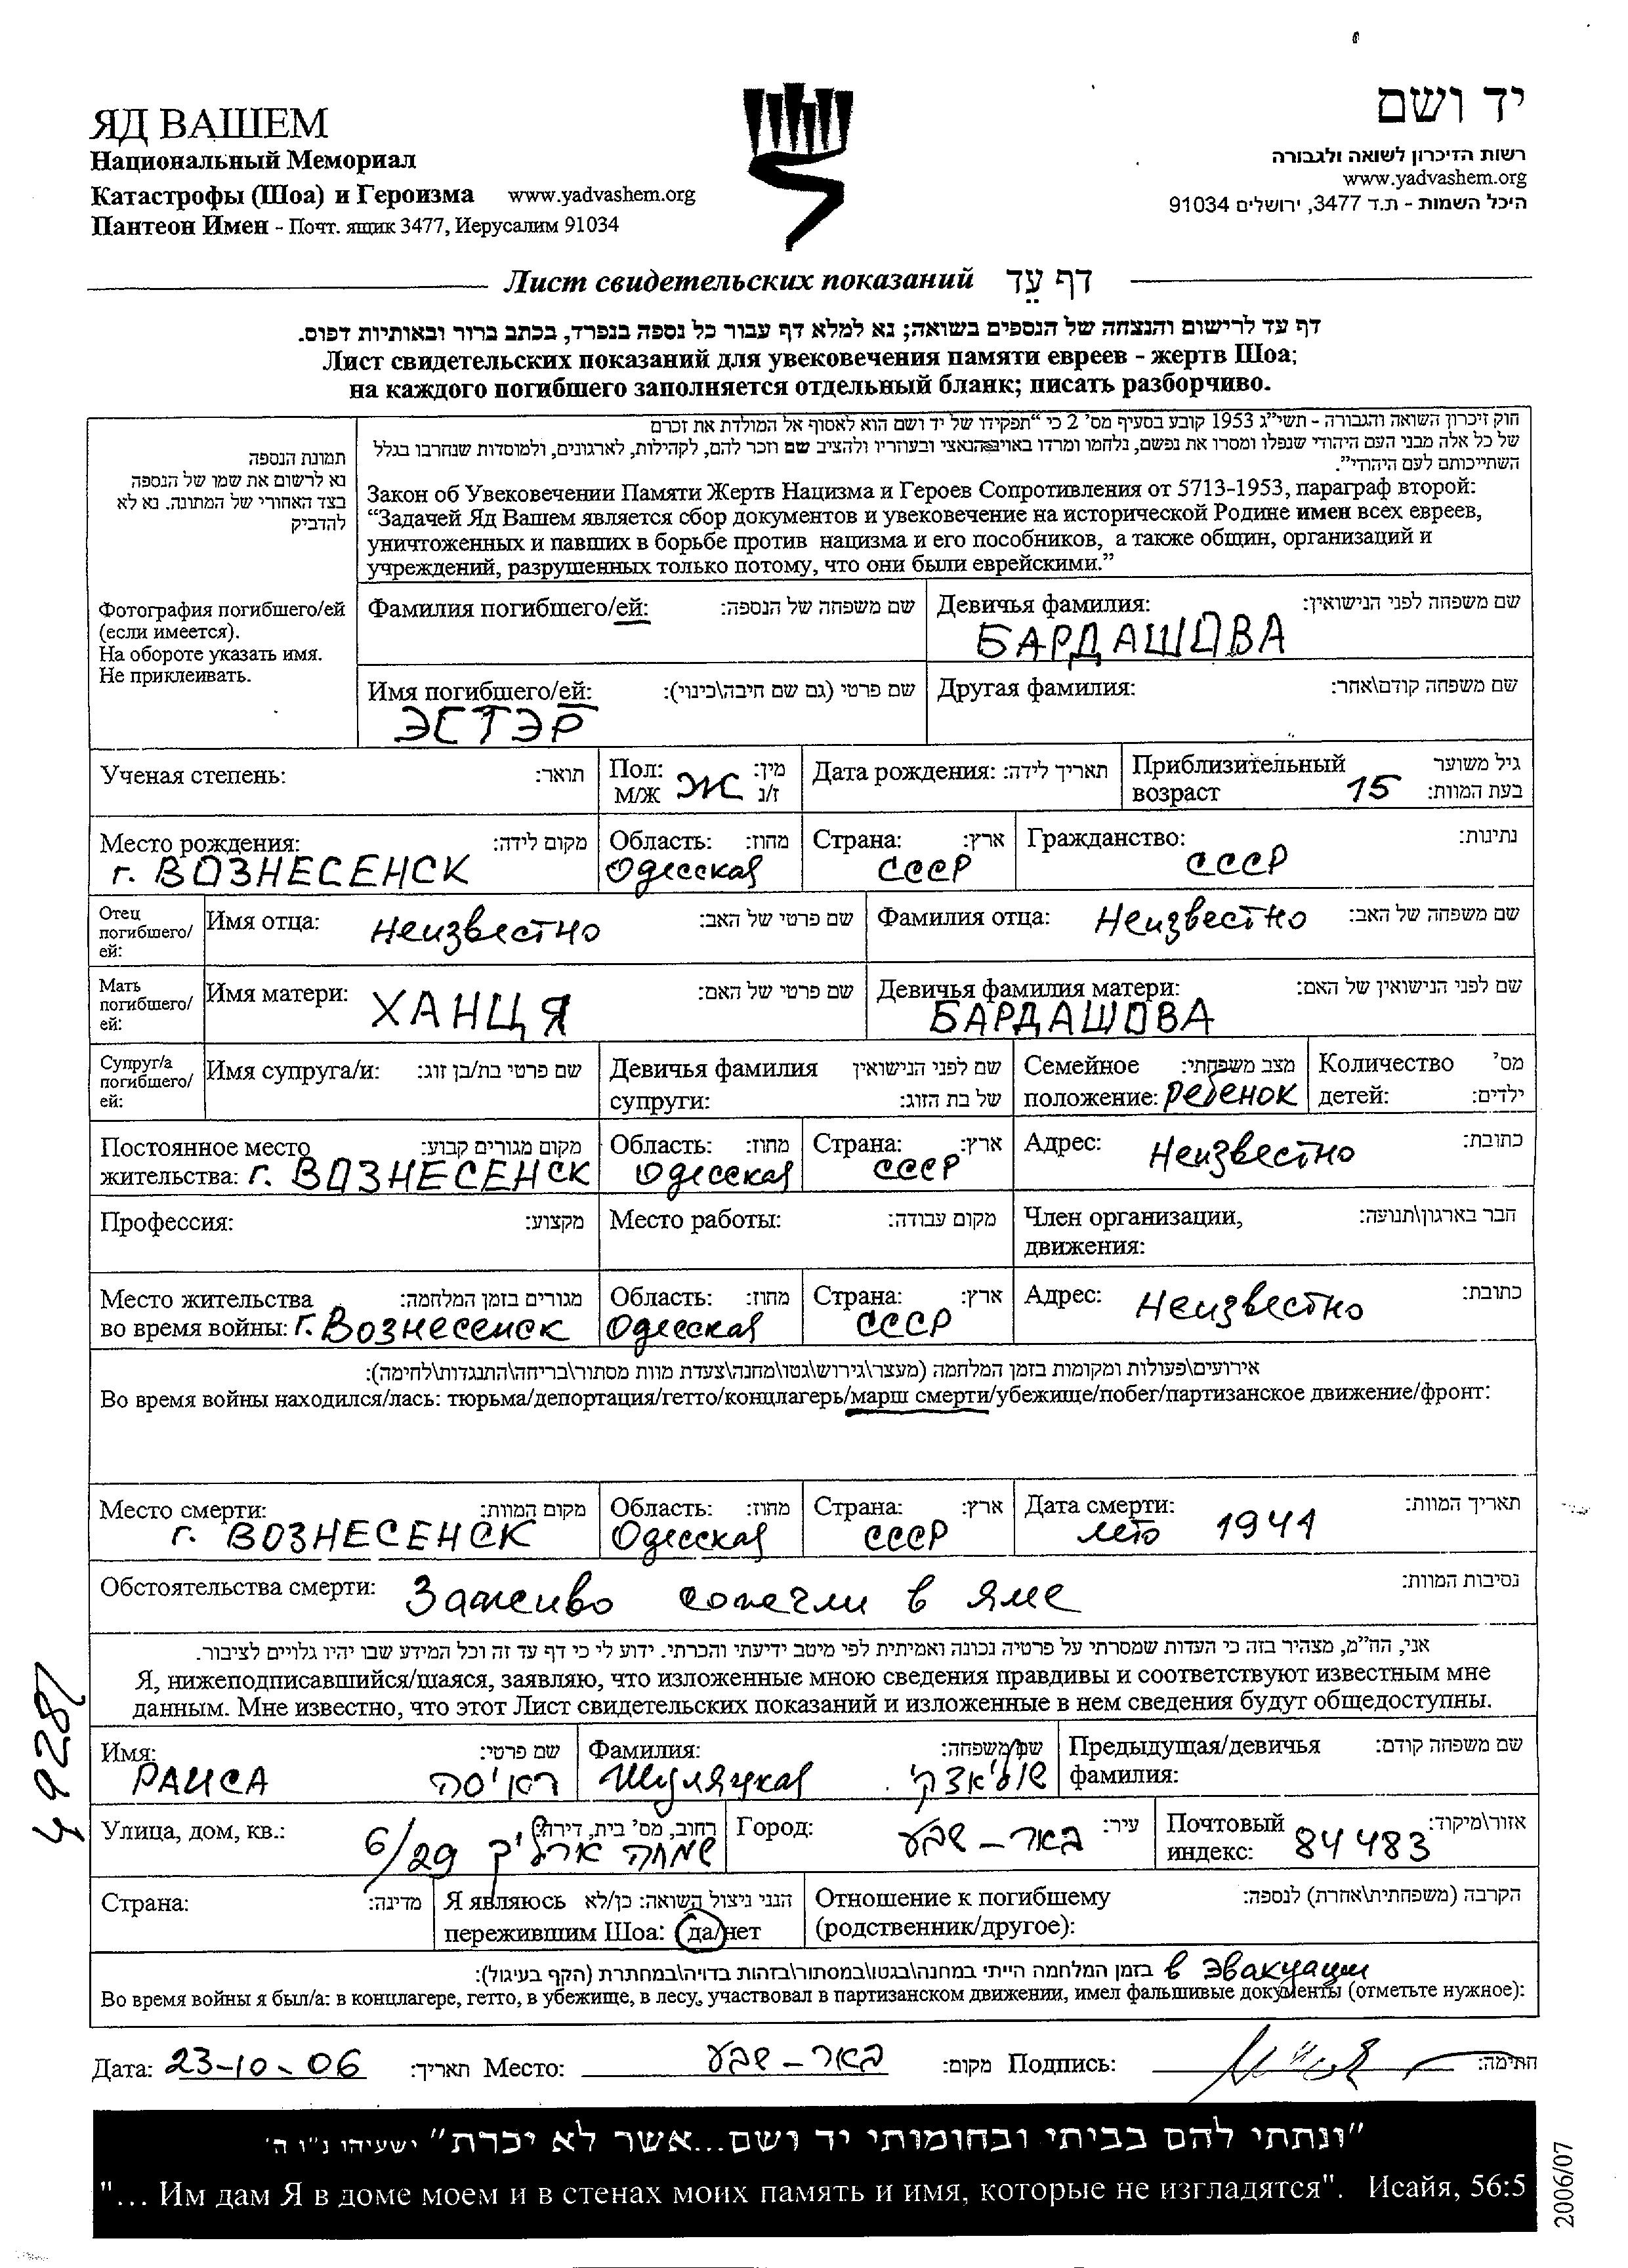 ЯД ВАШЕМ
Национальный Мемориал
Катастрофы (Шоа) и Героизма www.yadvashem.org
Пантеон Имен - Почт. ящик 3477, Иерусалим 91034
יד ושם
רשות הזיכרון לשואה ולגבורה
www.yadvashem.org
היכל השמות - ת.ד 3477, ירושלים 91034
Лист свидетельских показаний דף עֵד
דף עד לרישום והנצחה של הנספים בשואה; נא למלא דף עבור כל נספה בנפרד, בכתב ברור ובאותיות דפוס.
Лист свидетельских показаний для увековечения памяти евреев - жертв Шоа;
на каждого погибшего заполняется отдельный бланк; писать разборчиво.
תמונת הנספה
נא לרשום את שמו של הנספה
בצד האחורי של התמונה. נא לא
להדביק
Фотография погибшего/ей
(если имеется).
На обороте указать имя.
Не приклеивать.
חוק זיכרון השואה והגבורה - תשי"ג 1953 קובע בסעיף מס' 2 כי "תפקידו של יד ושם הוא לאסוף אל המולדת את זכרם
של כל אלה מבני העם היהודי שנפלו ומסרו את נפשם, נלחמו ומרדו באויב הנאצי ובעוזריו ולהציב שם וזכר להם, לקהילות, לארגונים, ולמוסדות שנחרבו בגלל
השתייכותם לעם היהודי".
Закон об Увековечении Памяти Жертв Нацизма и Героев Сопротивления от 5713-1953, параграф второй:
"Задачей Яд Вашем является сбор документов и увековечение на исторической Родине имен всех евреев,
уничтоженных и павших в борьбе против нацизма и его пособников, а также общин, организаций и
учреждений, разрушенных только потому, что они были еврейскими."
Фамилия погибшего/ей: שם משפחה של הנספה:
Девичья фамилия: שם משפחה לפני הנישואין:
БАРДАШОВА
Имя погибшего/ей: שם פרטי (גם שם חיבה\כינוי):
ЭСТЭР
Другая фамилия: שם משפחה קודם\אחר:
Ученая степень: תואר:
Пол: מין:
М/Ж Ж ז/נ
Дата рождения: תאריך לידה:
Приблизительный גיל משוער
возраст 15 בעת המוות:
Место рождения: מקום לידה:
г. ВОЗНЕСЕНСК
Область: מחוז:
Одесская
Страна: ארץ:
СССР
Гражданство: נתינות:
СССР
Отец
погибшего/
ей:
Имя отца: Неизвестно שם פרטי של האב:
Фамилия отца: Неизвестно שם משפחה של האב:
Мать
погибшего/
ей:
Имя матери: ХАНЦЯ שם פרטי של האם:
Девичья фамилия матери: שם לפני הנישואין של האם:
БАРДАШОВА
Супруг/а
погибшего/
ей:
Имя супруга/и: שם פרטי בת/בן זוג:
Девичья фамилия שם לפני הנישואין
супруги: של בת הזוג:
Семейное מצב משפחתי:
положение: Ребенок
Количество מס'
детей: ילדים:
Постоянное место מקום מגורים קבוע:
жительства: г. ВОЗНЕСЕНСК
Область: מחוז:
Одесская
Страна: ארץ:
СССР
Адрес: Неизвестно כתובת:
Профессия: מקצוע:
Место работы: מקום עבודה:
Член организации, חבר בארגון\תנועה:
движения:
Место жительства מגורים בזמן המלחמה:
во время войны: г. Вознесенск
Область: מחוז:
Одесская
Страна: ארץ:
СССР
Адрес: Неизвестно כתובת:
אירועים\פעולות ומקומות בזמן המלחמה (מעצר\גירוש\גטו\מחנה\צעדת מוות מסתור\בריחה\התנגדות\לחימה):
Во время войны находился/лась: тюрьма/депортация/гетто/концлагерь/марш смерти/убежище/побег/партизанское движение/фронт:
Место смерти: מקום המוות:
г. ВОЗНЕСЕНСК
Область: מחוז:
Одесская
Страна: ארץ:
СССР
Дата смерти: תאריך המוות:
лето 1941
Обстоятельства смерти: Заживо сожгли в яме נסיבות המוות:
אני, הח"מ, מצהיר בזה כי העדות שמסרתי על פרטיה נכונה ואמיתית לפי מיטב ידיעתי והכרתי. ידוע לי כי דף עד זה וכל המידע שבו יהיו גלויים לציבור.
Я, нижеподписавшийся/шаяся, заявляю, что изложенные мною сведения правдивы и соответствуют известным мне
данным. Мне известно, что этот Лист свидетельских показаний и изложенные в нем сведения будут общедоступны.
Имя: שם פרטי:
РАИСА ראיסה
Фамилия: שם משפחה:
Шуляцкая שוליאצקי
Предыдущая/девичья שם משפחה קודם:
фамилия:
Улица, дом, кв.: רחוב, מס' בית, דירה:
6/29 שמחה ארליך
Город: באר-שבע עיר:
Почтовый אזור\מיקוד:
индекс: 84483
Страна: מדינה:
Я являюсь הנני ניצול השואה: כן/לא
пережившим Шоа: да/нет
Отношение к погибшему הקרבה (משפחתית\אחרת) לנספה:
(родственник/другое):
בזמן המלחמה הייתי במחנה\בגטו\במסתור\בזהות בדויה\במחתרת (הקף בעיגול): в эвакуации
Во время войны я был/а: в концлагере, гетто, в убежище, в лесу, участвовал в партизанском движении, имел фальшивые документы (отметьте нужное):
Дата: 23-10-06 תאריך: Место: באר-שבע מקום: Подпись: חתימה:
"ונתתי להם בביתי ובחומותי יד ושם...אשר לא יכרת" ישעיהו נ"ו ה'
"... Им дам Я в доме моем и в стенах моих память и имя, которые не изгладятся". Исайя, 56:5
2006/07